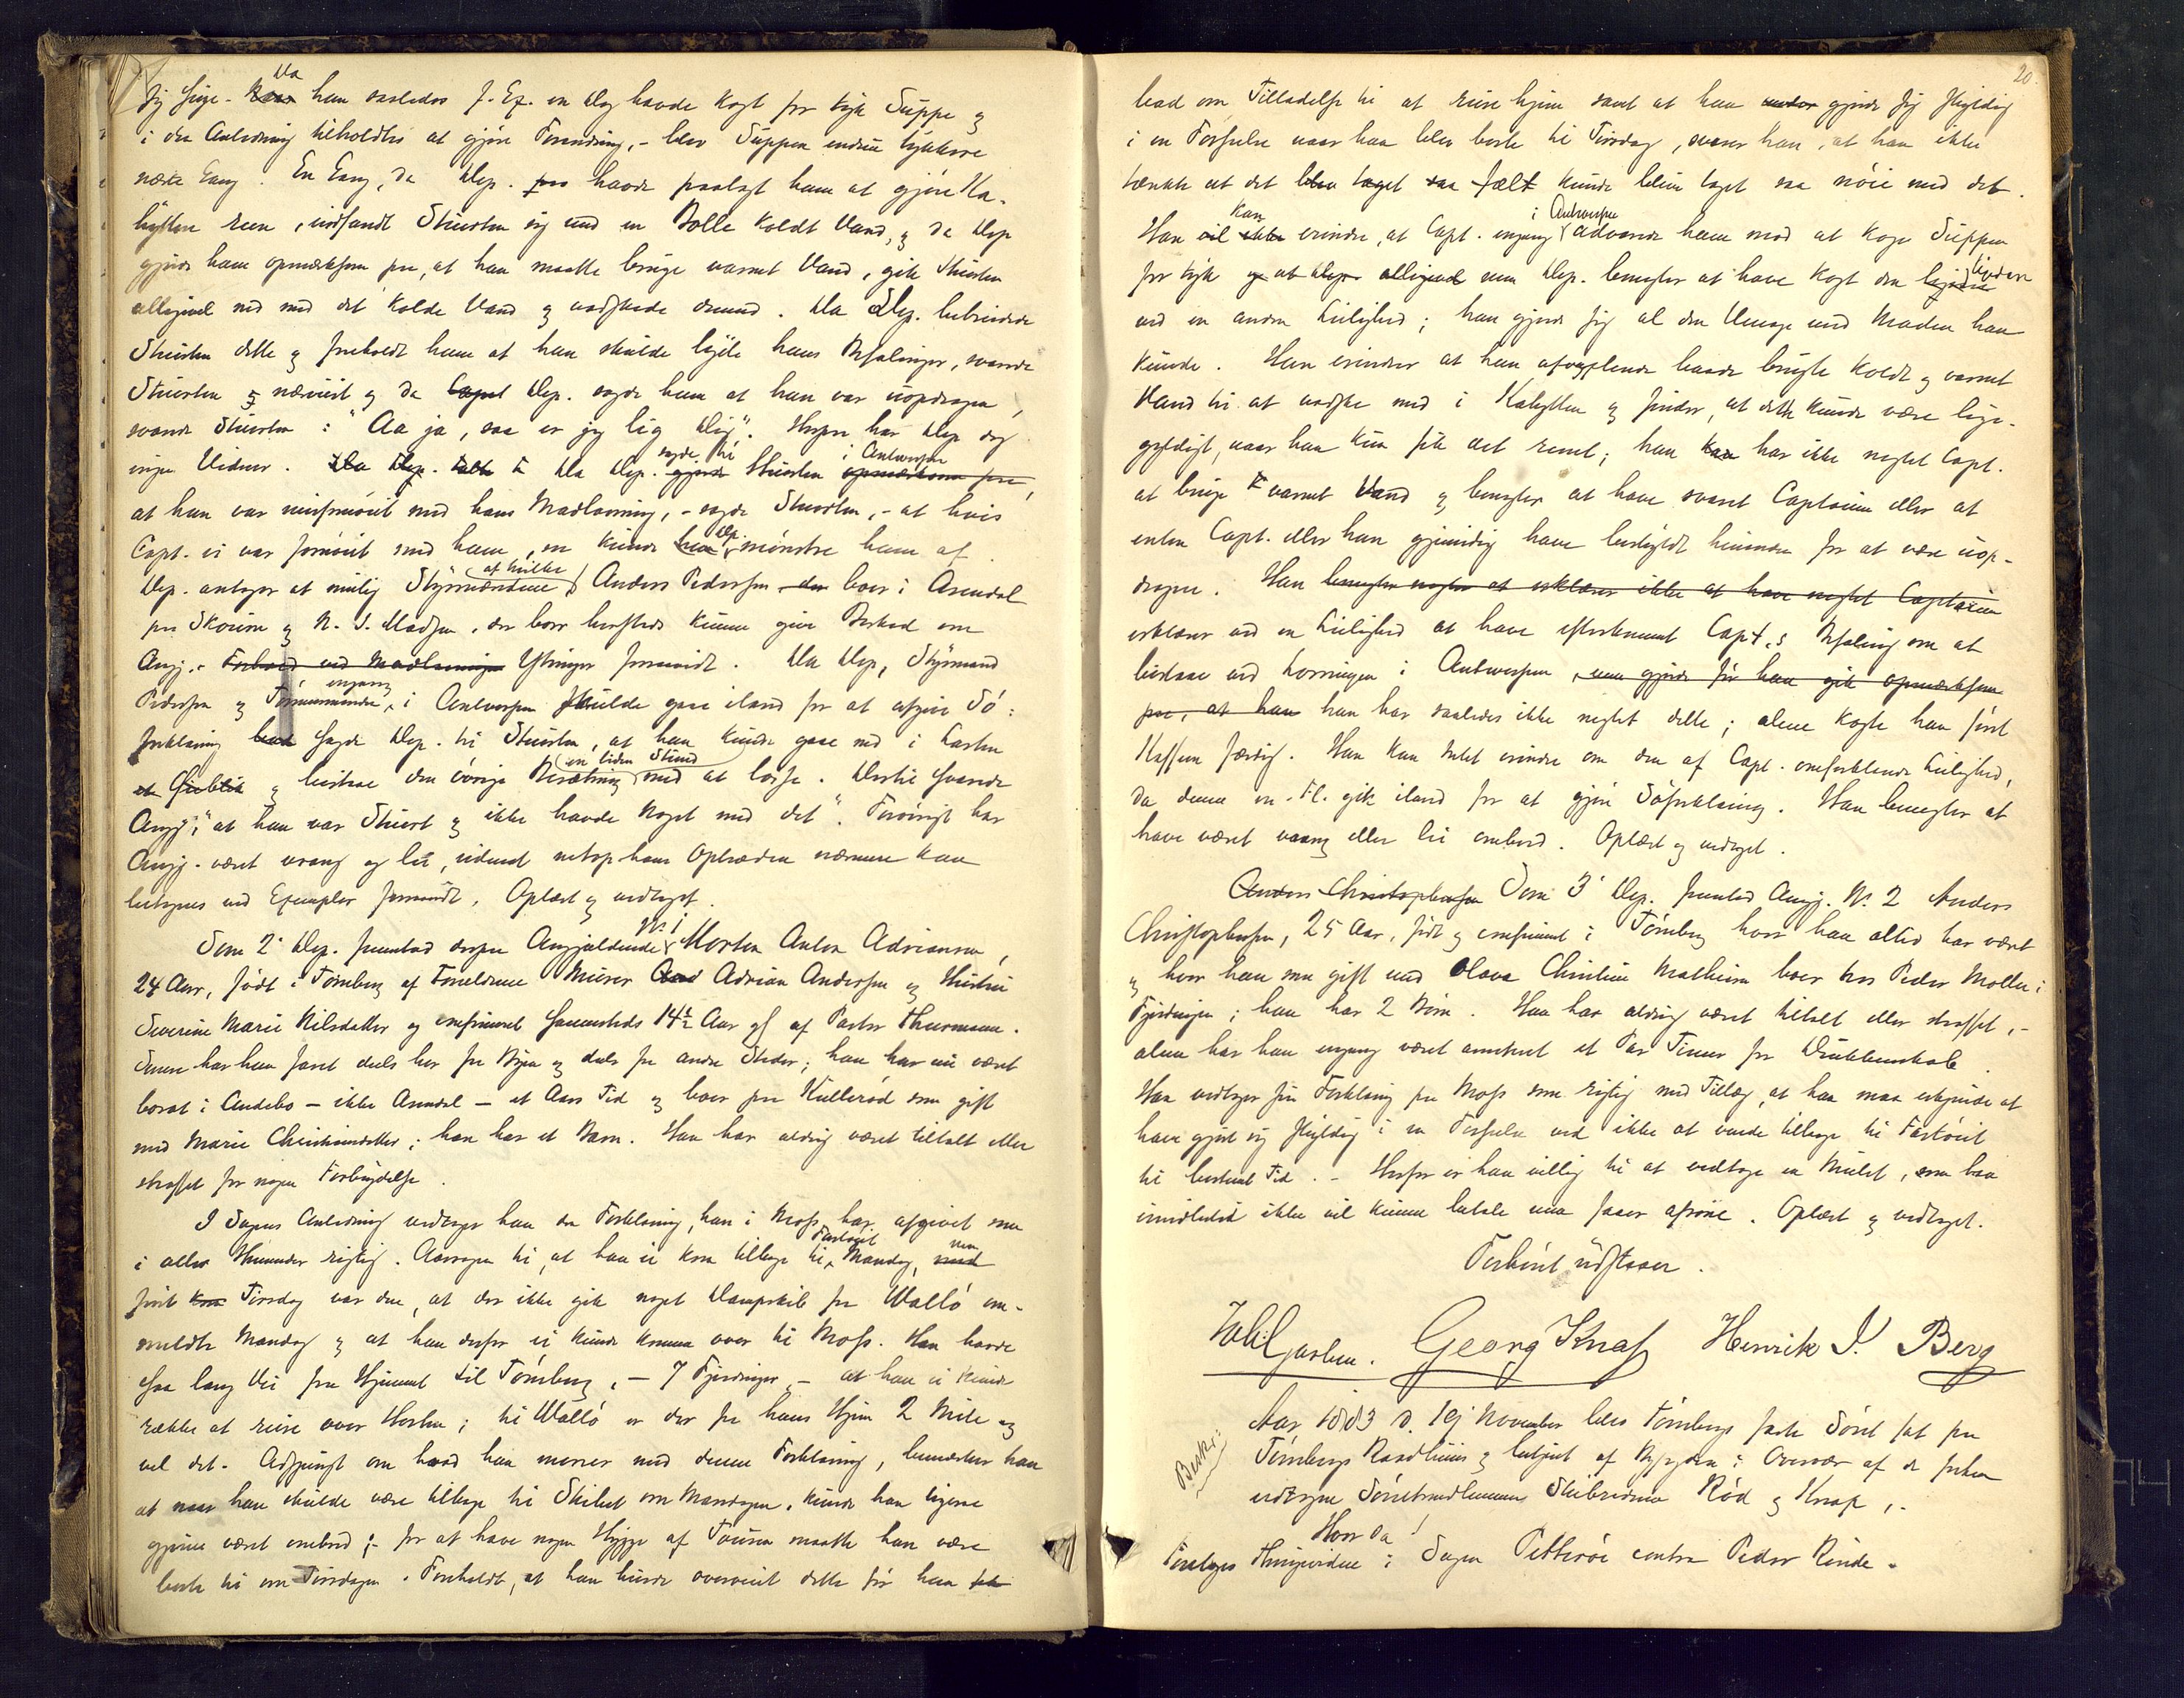 sig sige. Da han saaledes f. Ex. en Dag havde kogt for tyk Suppe og
i den Anledning tilholdtes at gjøre Forandring, - blev Suppen endnu tykkere
næste Gang. En Gang, da Dep. havde paalagt ham at gjøre Ka-
hytten reen, indfandt Stuerten sig med en Bolle koldt Vand, og da Dep
gjorde ham opmærksom paa, at han maatte bruge varmt Vand, gik Stuerten
alligevel ned med det kolde Vand og vadskede dermed. Da Dep. bebreidede
Stuerten dette og foreholdt ham at han skulde lyde hans Befalinger, svarede
Stuerten næsviist og da Dep. sagde ham at han var uopdragen,
svarede Stuerten: "Aa ja, saa er jeg lig Dig". Herpaa har Dep dog
ingen Vidner. Da Dep. sagde til Stuerten i Antwerpen
at han var misfornøiet med hans Madlavning, - sagde Stuerten, - at hvis
Capt. ei var fornøiet med ham, saa kunde Dep. mønstre ham af.
Dep. antager at muligens Styrmændene, af hvilke Anders Pedersen boer i Arendal
paa Skouen og N. J. Madsen, der boer hersteds kunne give Besked om
Angj.s Forhold ved Madlavningen Ytringer forsaavidt. Da Dep, Styrmand
Pedersen og Tømmermanden engang i Antwerpen skulde gaae iland for at afgive Sø-
forklaring sagde Dep. til Stuerten, at han kunde gaae ned i Lasten
et Øieblik og bistaae den øvrige Besætning en liden Stund med at losse. Dertil svarede
Angj. "at han var Stuert og ikke havde noget med det". Forøvrigt har
Angj. været vrang og lei, uden at netop hans Optræden nærmere kan
betegnes ved Exempler forsaavidt. Oplæst og vedtaget.
Som 2' Dep. fremstod derpaa Angjældende N. 1 Morten Anton Adriansen,
24 Aar, født i Tønsberg af Forældrene Murer Adrian Andersen og Hustru
Severine Marie Nilsdatter og confirmeret sammesteds 14½ Aar gl af Pastor Thurmann.
Senere har han faret deels her fra Byen og deels fra andre Steder; han har nu været
bosat i Andebo - ikke Arendal - et Aars Tid og boer paa Kullerød som gift
med Marie Christiansdatter; han har et Barn. Han har aldrig været tiltalt eller
straffet for nogen Forbrydelse.
I Sagens Anledning vedtager han den Forklaring, han i Moss har afgivet som
i alle Henseender rigtig. Aarsagen til, at han ei kom tilbage til Fartøiet Mandag, men
først Tirsdag var den, at der ikke gik noget Dampskib fra Vallø om-
meldte Mandag og at han derfor ei kunde komme over til Moss. Han havde
saa lang Vei fra Hjemmet til Tønsberg, - 7 Fjerdinger - at han ei kunde
række at reise over Horten; til Vallø er der fra hans Hjem 2 Mile og
vel det. Adspurgt om hvad han mener med denne Forklaring, bemærker han
at naar han skulde være tilbage til Skibet om Mandagen, kunde han ligesaa
gjerne været ombord; - for at have nogen Hygge af Touren maatte han være
borte til om Tirsdagen. Foreholdt, at han burde overveiet dette før han
20
bad om Tilladelse til at reise hjem samt at han gjorde sig skyldig
i en Forseelse naar han blev borte til Tirsdag, svarer han, at han ikke
tænkte at det kunde blive taget saa nøie med det.
Han kan erindre, at Capt. engang i Antwerpen advarede ham mod at koge Suppen
for tyk men Dep. benegter at have kogt den tykkere
ved en anden Leilighed; han gjorde sig al den Umage med Maden han
kunde. Han erindrer at han afvexlende havde brugte koldt og varmt
Vand til at vadske med i Kahytten og finder, at dette kunde være lige-
gyldigt, naar han kun fik det reent; han har ikke negtet Capt.
at bruge varmt Vand og benegter at have svaret Captainen eller at
enten Capt. eller han gjensidig have beskyldt hinanden for at være uop-
dragne. Han benegter negter at erklærer ikke at have negtet Captainen
erklærer ved en Leilighed at have efterkommet Capt.s Befaling om at
bistaae ved Losningen i Antwerpen, men gjorde før han gik opmærksom
paa, at han han har saaledes ikke negtet dette; alene kogte han først
Kaffeen færdig. Han kan intet erindre om den af Capt. omforklarede Leilighed,
da denne m. Fl. gik iland for at gjøre Søforklaring. Han benegter at
have været vrang eller lei ombord. Oplæst og vedtaget.
Anders Christophersen Som 3' Dep. fremstod Angj. N. 2 Anders
Christophersen, 25 Aar, født og confirmeret i Tønsberg hvor han altid har været
og hvor han som gift med Olava Christine Mathisen boer hos Peder Møller i
Fjerdingen; han har 2 Børn. Han har aldrig været tiltalt eller straffet, -
alene har han engang været arresteret et Par Timer for Drukkenskab.
Han vedtager sin Forklaring paa Moss som rigtig med Tillæg, at han maa erkjende at
have gjort sig skyldig i en Forseelse ved ikke at vende tilbage til Fartøiet
til bestemt Tid. - Herfor er han villig til at vedtage en Mulct, som han
imidlertid ikke vil kunne betale men faaer afsone. Oplæst og vedtaget.
Forhøret udstaaer.
Georg Knap Henrik J. Berg
Aar 1883 d. 19 November blev Tønsbergs faste Søret sat paa
Tønsbergs Raadhuus og betjent af Byfogden i Overvær af de forhen
vedtagne Søretsmedlemmer Skibsrederne Rød og Knap,.
Hvor da!
Foretoges Thingsvidne i Sagen Petterøe contra Peder Rinde.